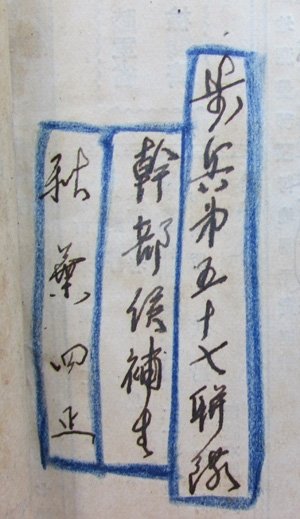 歩兵第五十七聯隊
幹部候補生
秋葉四正